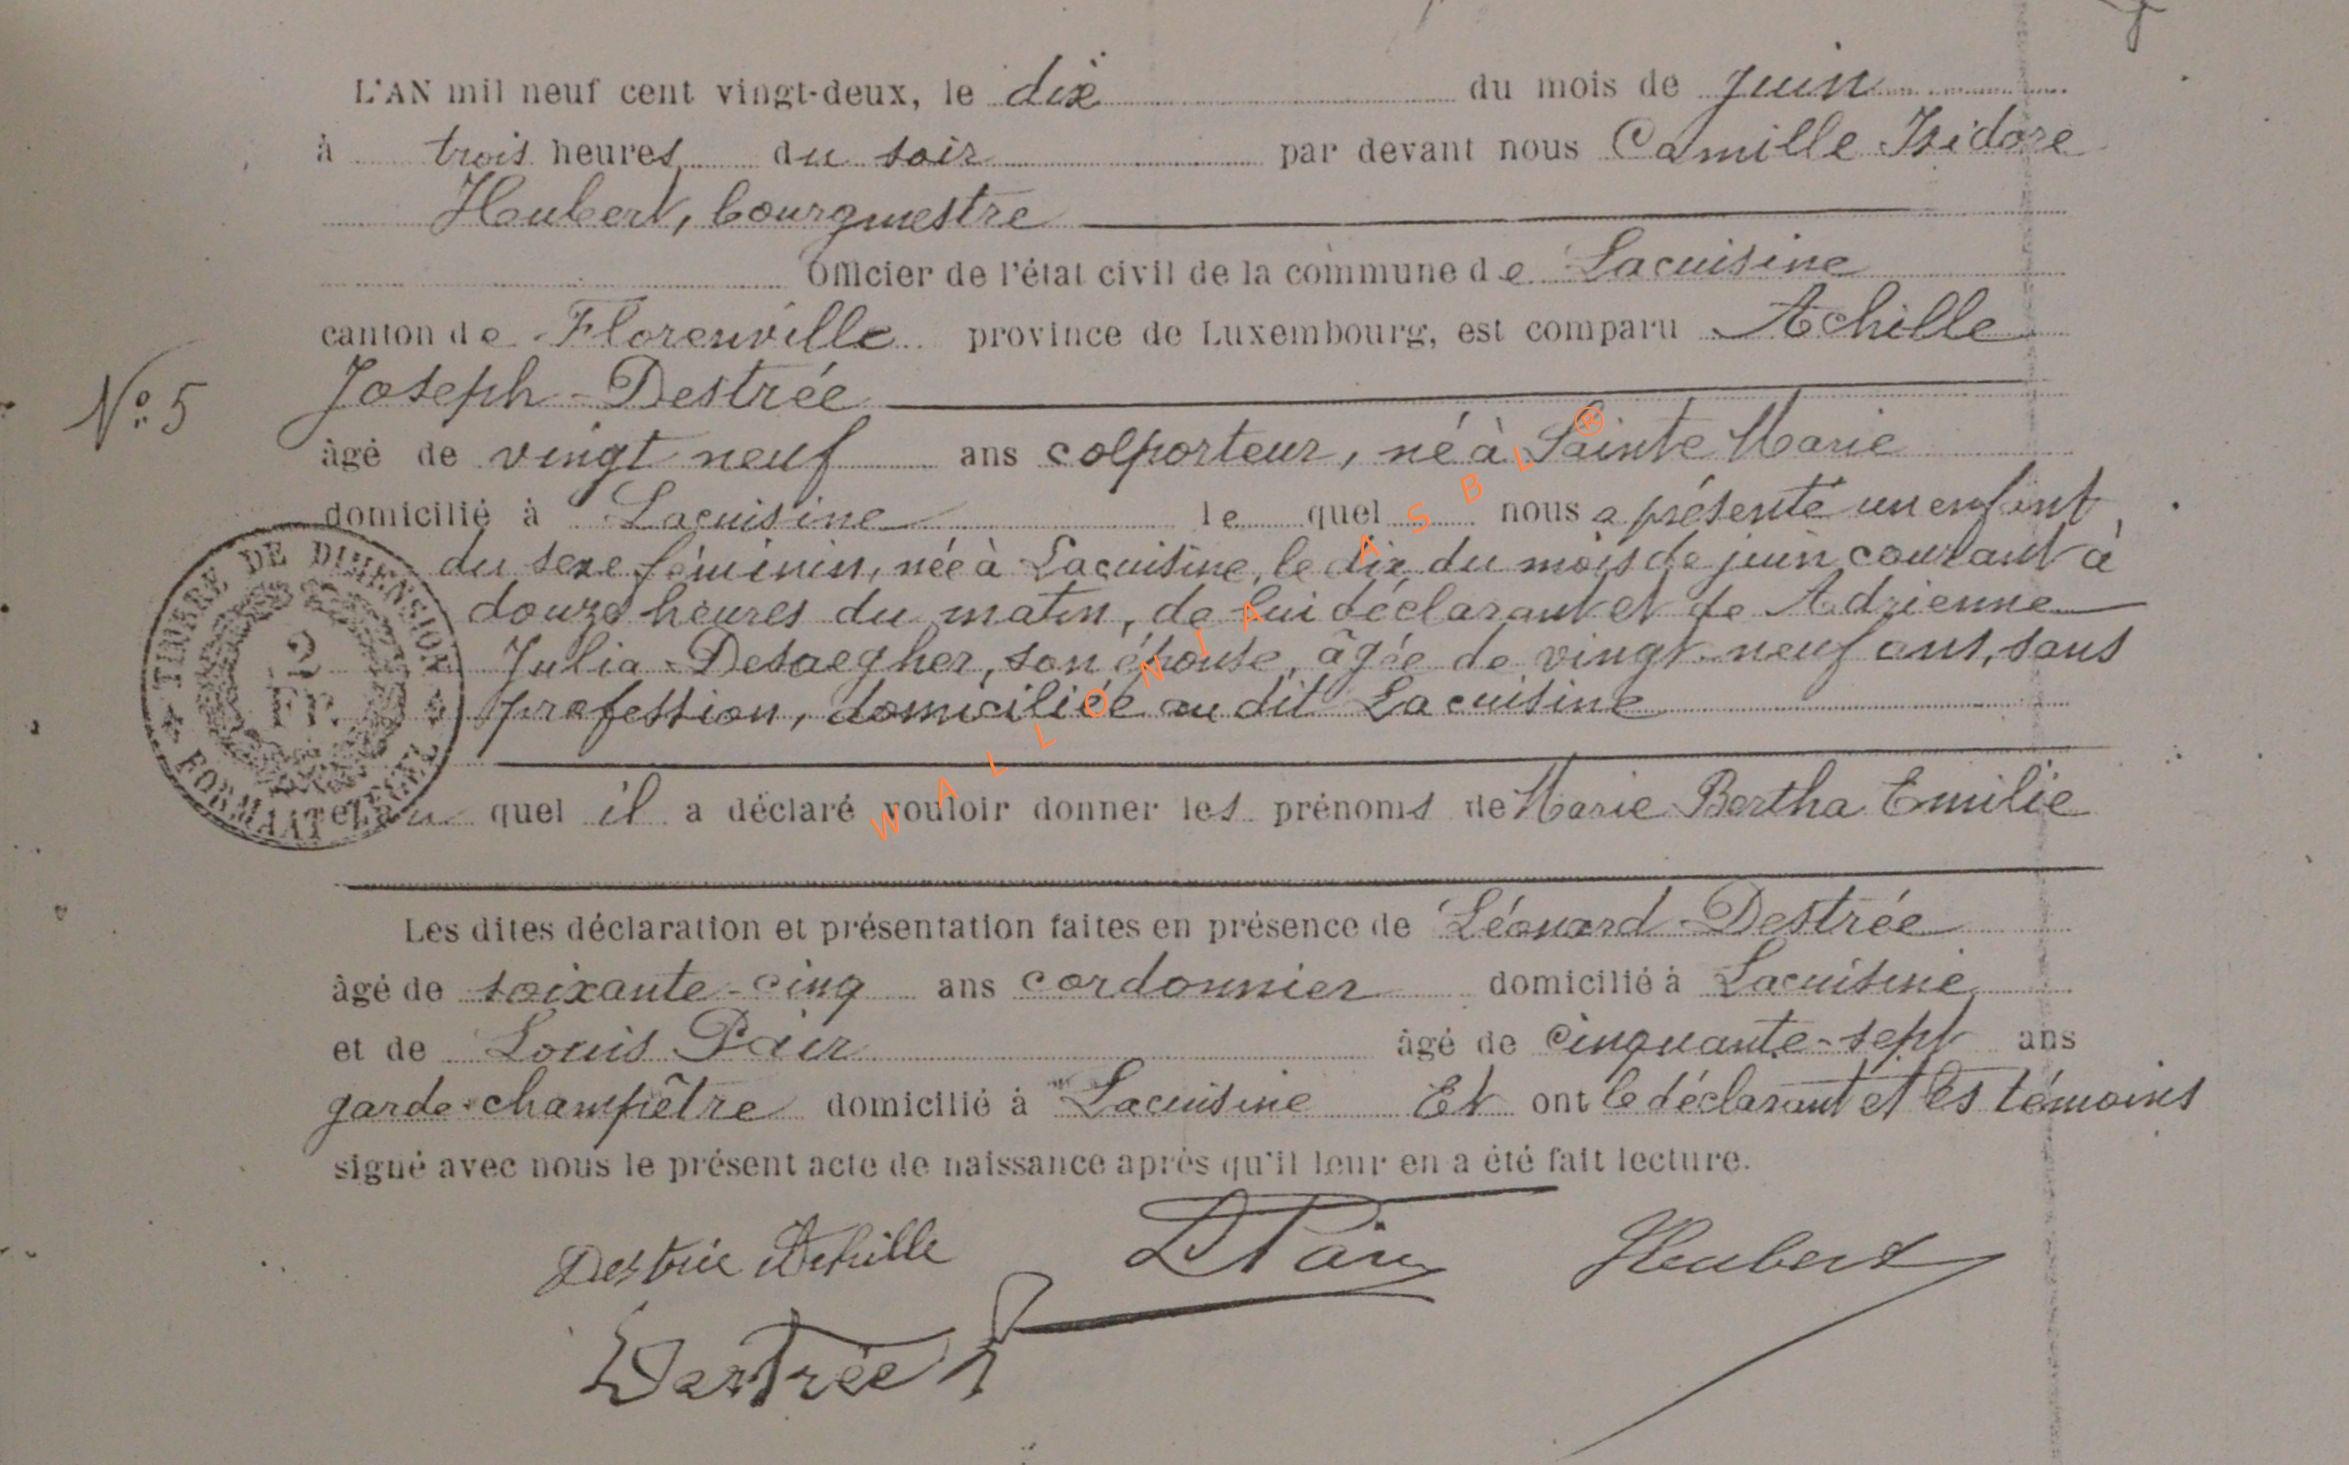 L'AN mil neuf cent vingt-deux, le dix du mois de juin
à trois heures du soir par devant nous Camille Isidore
Hubert, bourgmestre
Officier de l'état civil de la commune de Lacuisine
canton de Florenville province de Luxembourg, est comparu Achille
Joseph Destrée
N° 5
âgé de vingt neuf ans colporteur, né à Sainte Marie
domicilié à Lacuisine le quel nous a présenté un enfant
du sexe féminin, née à Lacuisine, le dix du mois de juin courant à
douze heures du matin, de lui déclarant et de Adrienne
Julia Desaegher, son épouse, âgée de vingt-neuf ans, sans
profession, domiciliée au dit Lacuisine
TIMBRE DE DIMENSION
2
Fr.
FORMAATZEGEL
et au quel il a déclaré vouloir donner les prénoms de Marie Bertha Emilie
Les dites déclaration et présentation faites en présence de Léonard Destrée
âgé de soixante-cinq ans cordonnier domicilié à Lacuisine
et de Louis Pair âgé de cinquante-sept ans
garde-champêtre domicilié à Lacuisine Et ont le déclarant et les témoins
signé avec nous le présent acte de naissance après qu'il leur en a été fait lecture.
Destrée Achille Hubert
Destrée
WALLONIA ASBL ®